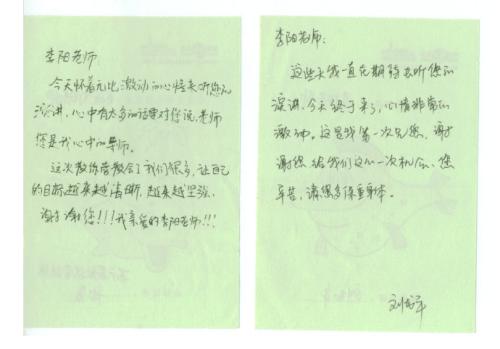 李阳老师
今天怀着无比激动的心情来听您的
演讲，心中有太多的话要对您说，老师
您是我心中的导师。
这次教练营教会了我们很多，让自己
的目标越来越清晰，越来越坚强。
谢谢您!!!我亲爱的李阳老师!!!
李阳老师：
这些天我一直在期待去听您的
演讲，今天终于来了，心情非常的
激动。这是我第一次见您，谢
谢您给我们这么一次机会，您
辛苦，请您多保重身体。